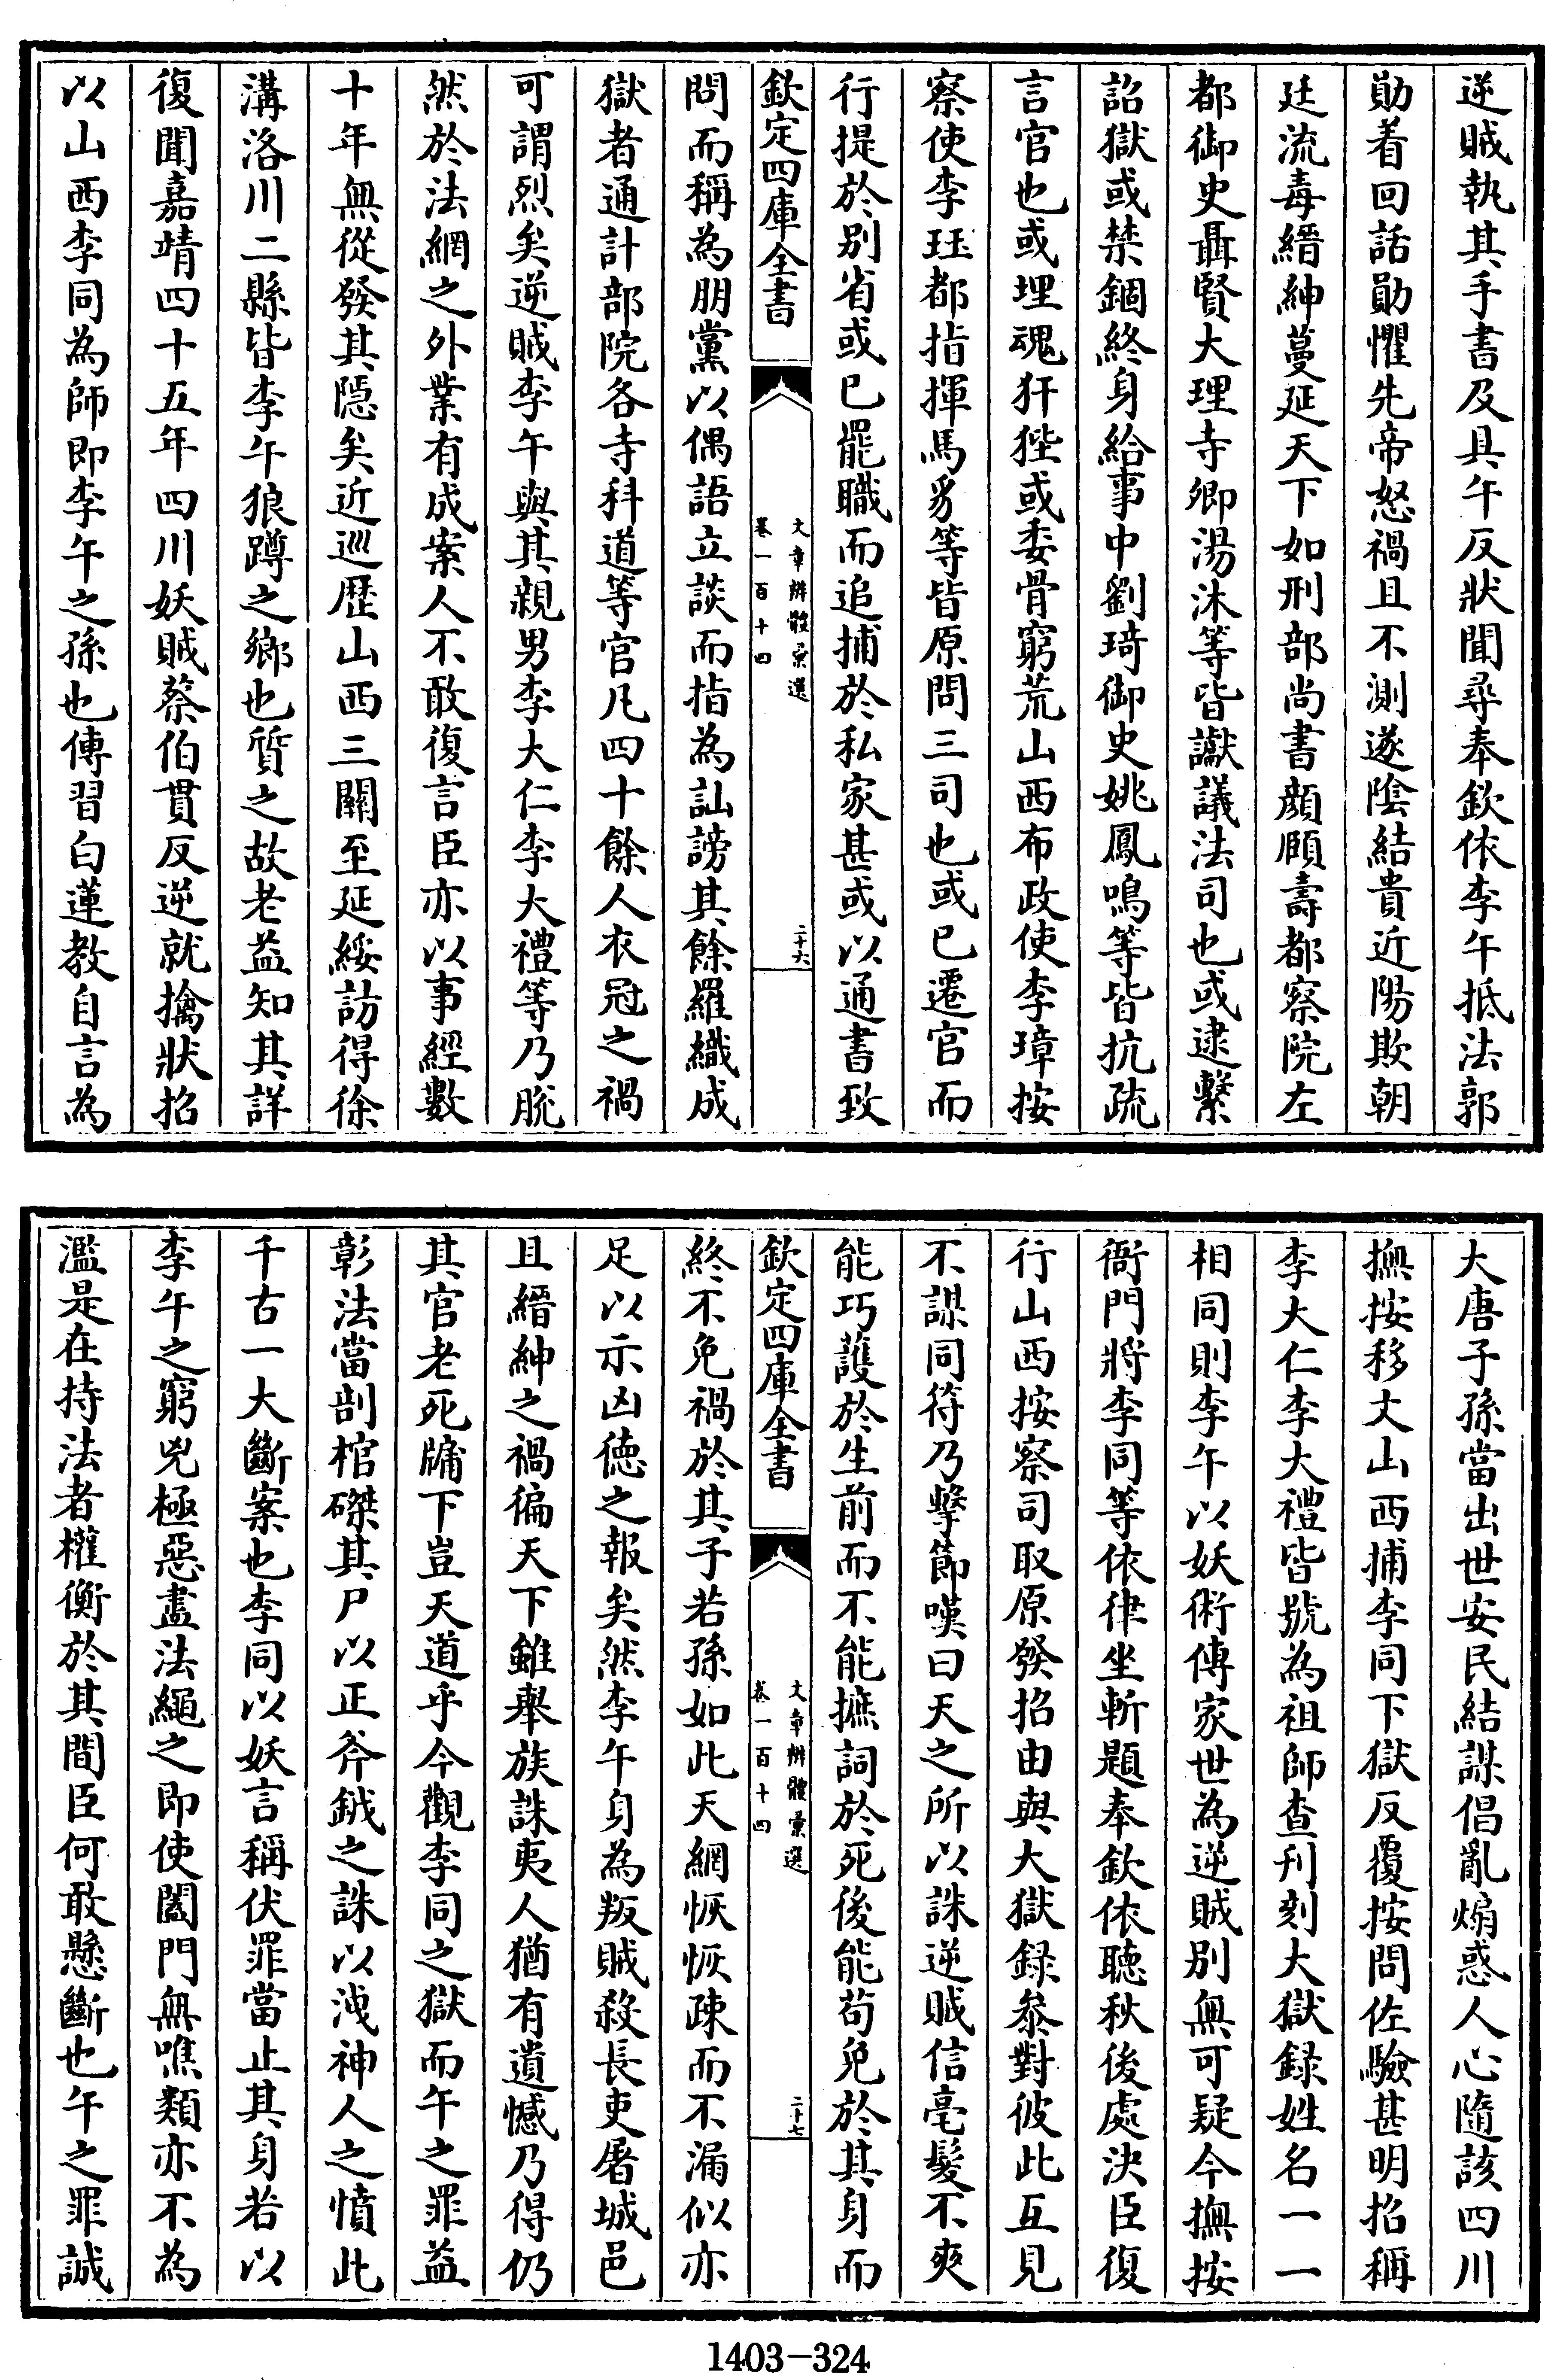 逆賊執其手書及具午反狀聞尋奉欽依李午抵法郭
勛着回話勛懼先帝怒禍且不測遂陰結貴近陽欺朝
廷流毒縉紳蔓延天下如刑部尚書顔頥壽都察院左
都御史聶賢大理寺卿湯沐等皆讞議法司也或逮繫
詔獄或禁錮終身給事中劉琦御史姚鳳鳴等皆抗疏
言官也或埋魂犴狴或委骨窮荒山西布政使李璋按
察使李珏都指揮馬豸等皆原問三司也或已遷官而
行提於别省或已罷職而追捕於私家甚或以通書致
欽定四庫全書
文章辨體彚選
卷一百十四
二十六
問而稱為朋黨以偶語立談而指為訕謗其餘羅織成
獄者通計部院各寺科道等官凡四十餘人衣冠之禍
可謂烈矣逆賊李午與其親男李大仁李大禮等乃脱
然於法網之外業有成案人不敢復言臣亦以事經數
十年無從發其隠矣近巡歴山西三關至延綏訪得徐
溝洛川二縣皆李午狼蹲之鄉也質之故老益知其詳
復聞嘉靖四十五年四川妖賊蔡伯貫反逆就擒狀招
以山西李同為師即李午之孫也傳習白蓮教自言為
大唐子孫當出世安民結謀倡亂煽惑人心隨該四川
撫按移文山西捕李同下獄反覆按問佐驗甚明招稱
李大仁李大禮皆號為祖師查刋刻大獄録姓名一一
相同則李午以妖術傳家世為逆賊别無可疑今撫按
衙門將李同等依律坐斬題奉欽依聽秋後處決臣復
行山西按察司取原發招由與大獄録叅對彼此互見
不謀同符乃擊節嘆曰天之所以誅逆賊信毫髮不爽
能巧護於生前而不能摭詞於死後能苟免於其身而
欽定四庫全書
文章辨體彚選
卷一百十四
二十七
終不免禍於其子若孫如此天網恢恢疎而不漏似亦
足以示凶徳之報矣然李午身為叛賊殺長吏屠城邑
且縉紳之禍徧天下雖舉族誅夷人猶有遺憾乃得仍
其官老死牖下豈天道乎今觀李同之獄而午之罪益
彰法當剖棺磔其尸以正斧鉞之誅以洩神人之憤此
千古一大斷案也李同以妖言稱伏罪當止其身若以
李午之窮兇極惡盡法繩之即使闔門無噍類亦不為
濫是在持法者權衡於其間臣何敢懸斷也午之罪誠
1403-324